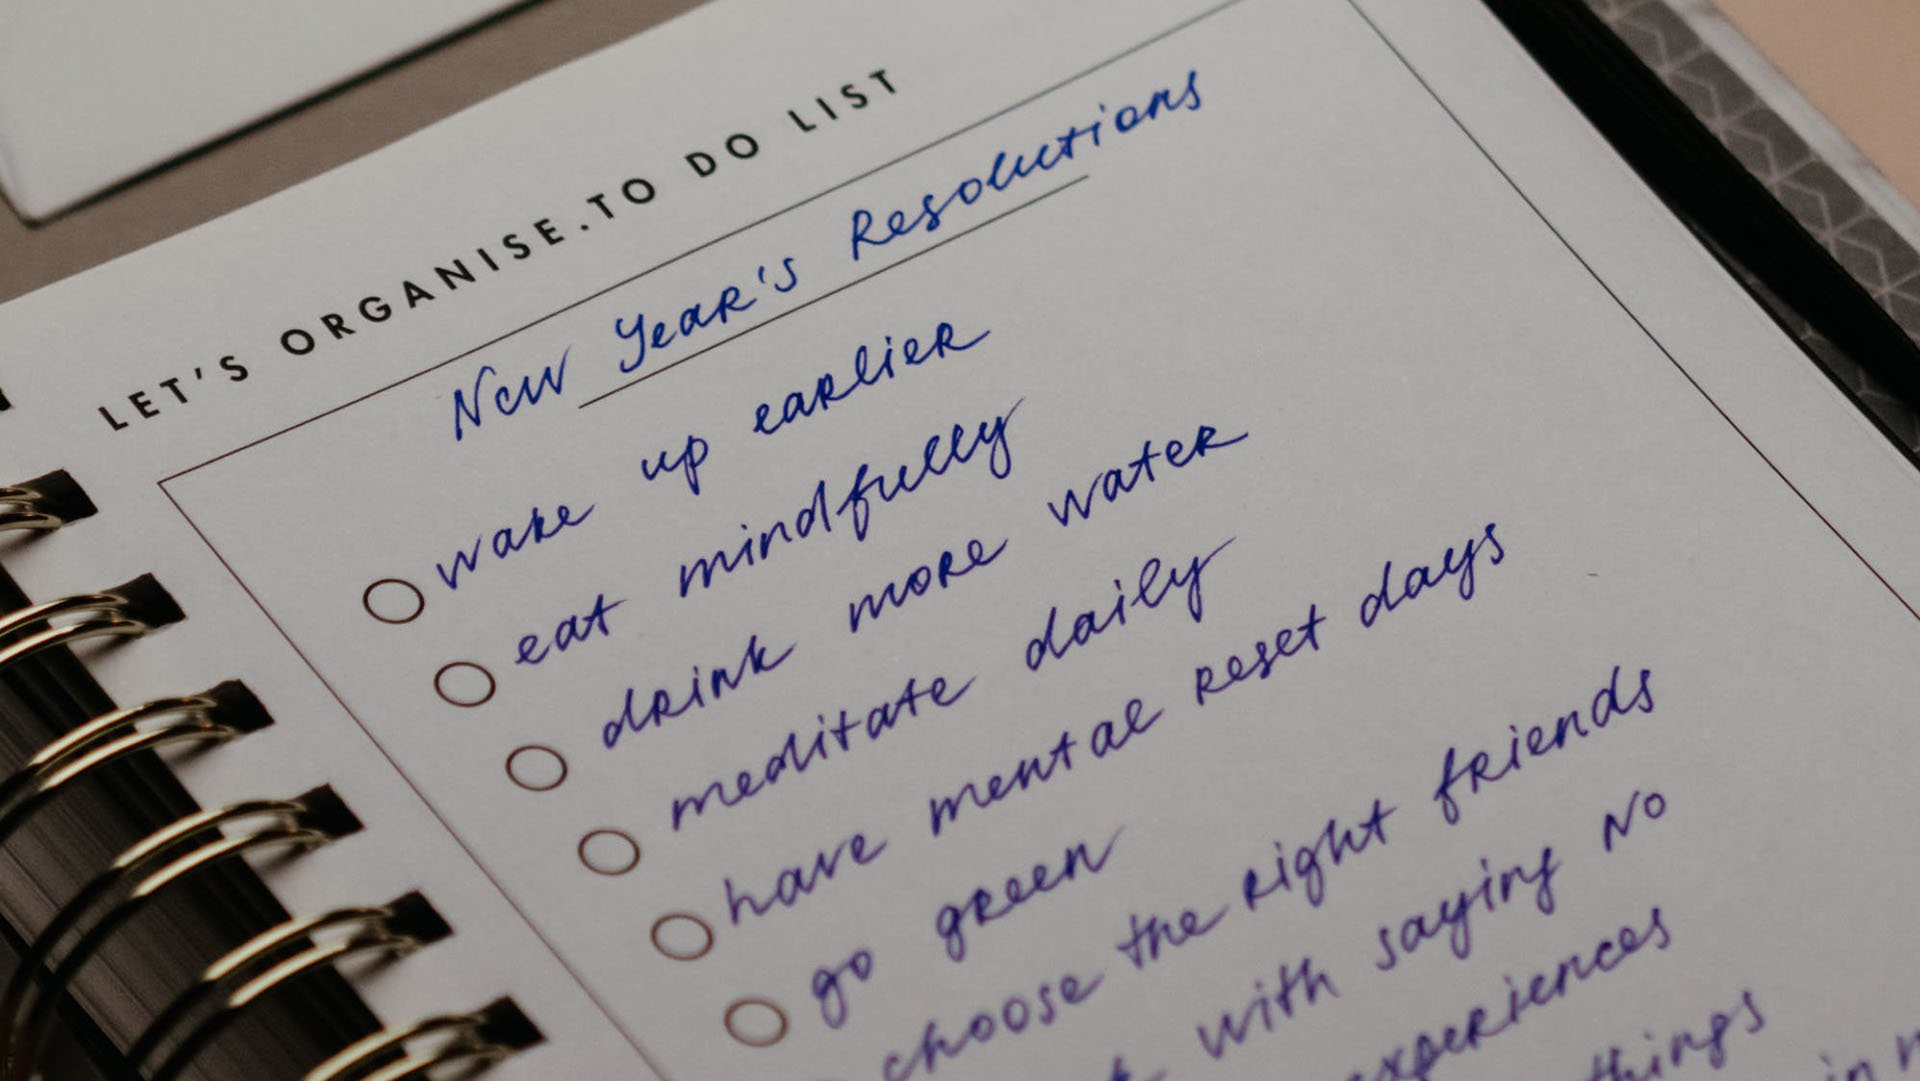 LET'S ORGANISE.TO DO LIST
New Year's Resolutions
wake up earlier
eat mindfully
drink more water
meditate daily
have mental reset days
go green
choose the right friends
with saying NO
experiences
things
in